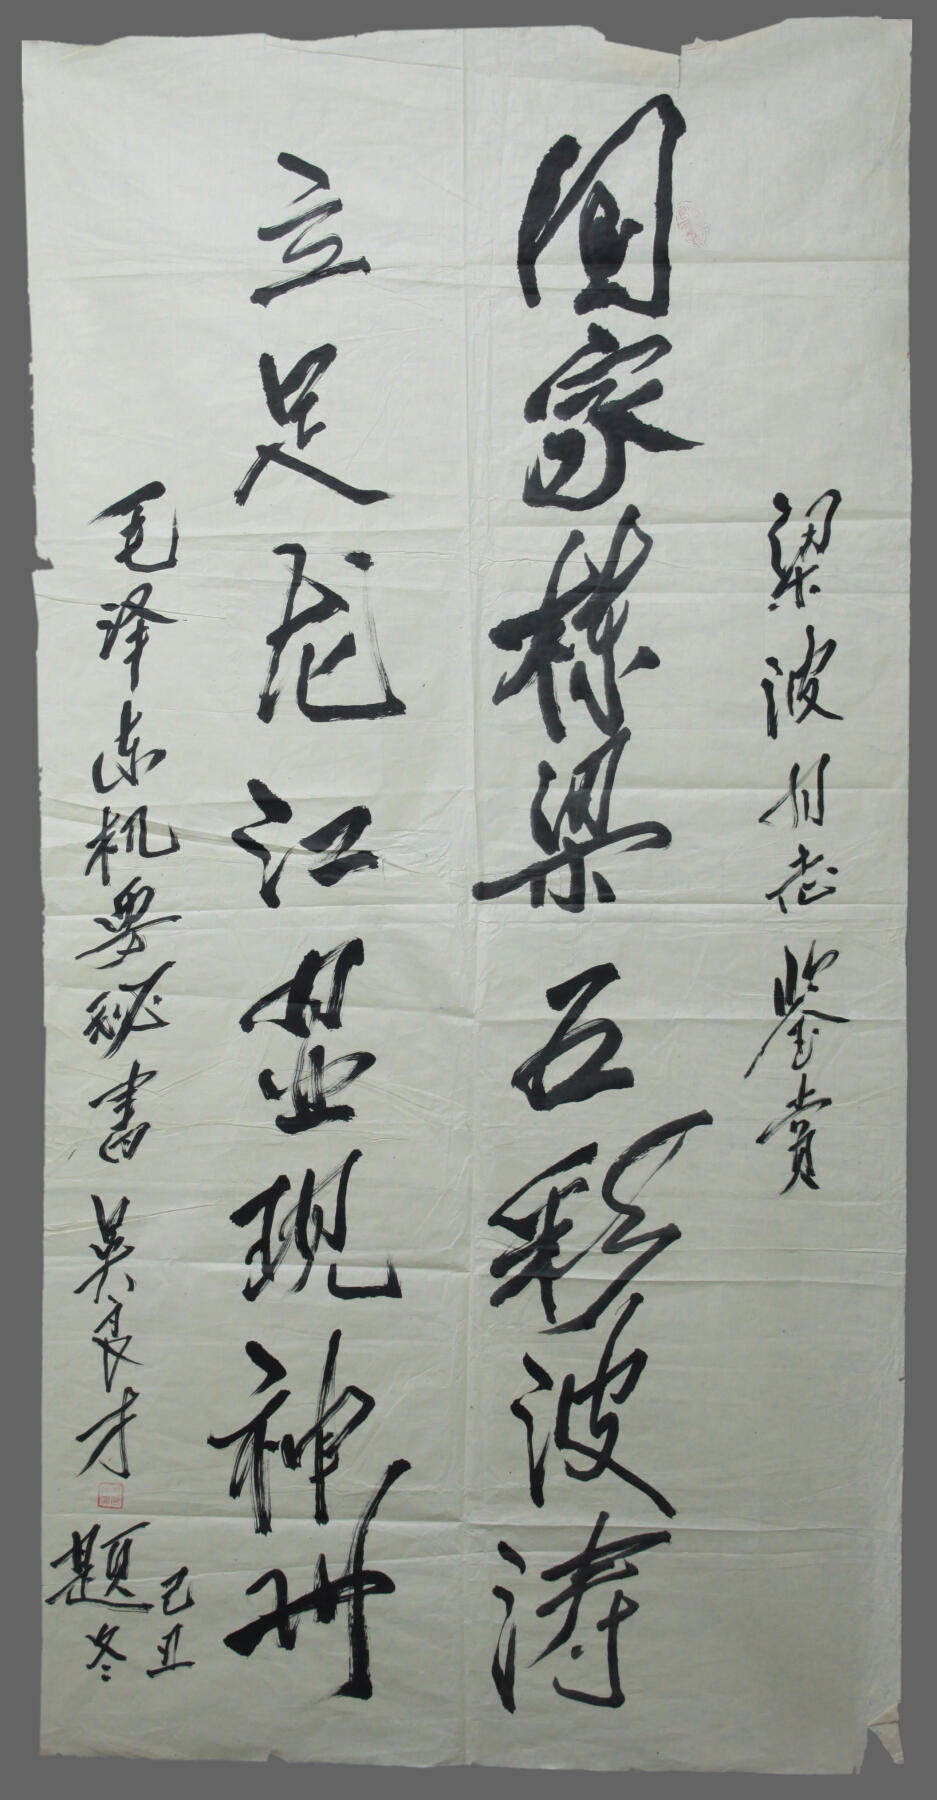 梁波同志鉴赏
国家栋梁五彩波涛
立足龙江显现神州
毛泽东机要秘书吴良才题
己丑冬